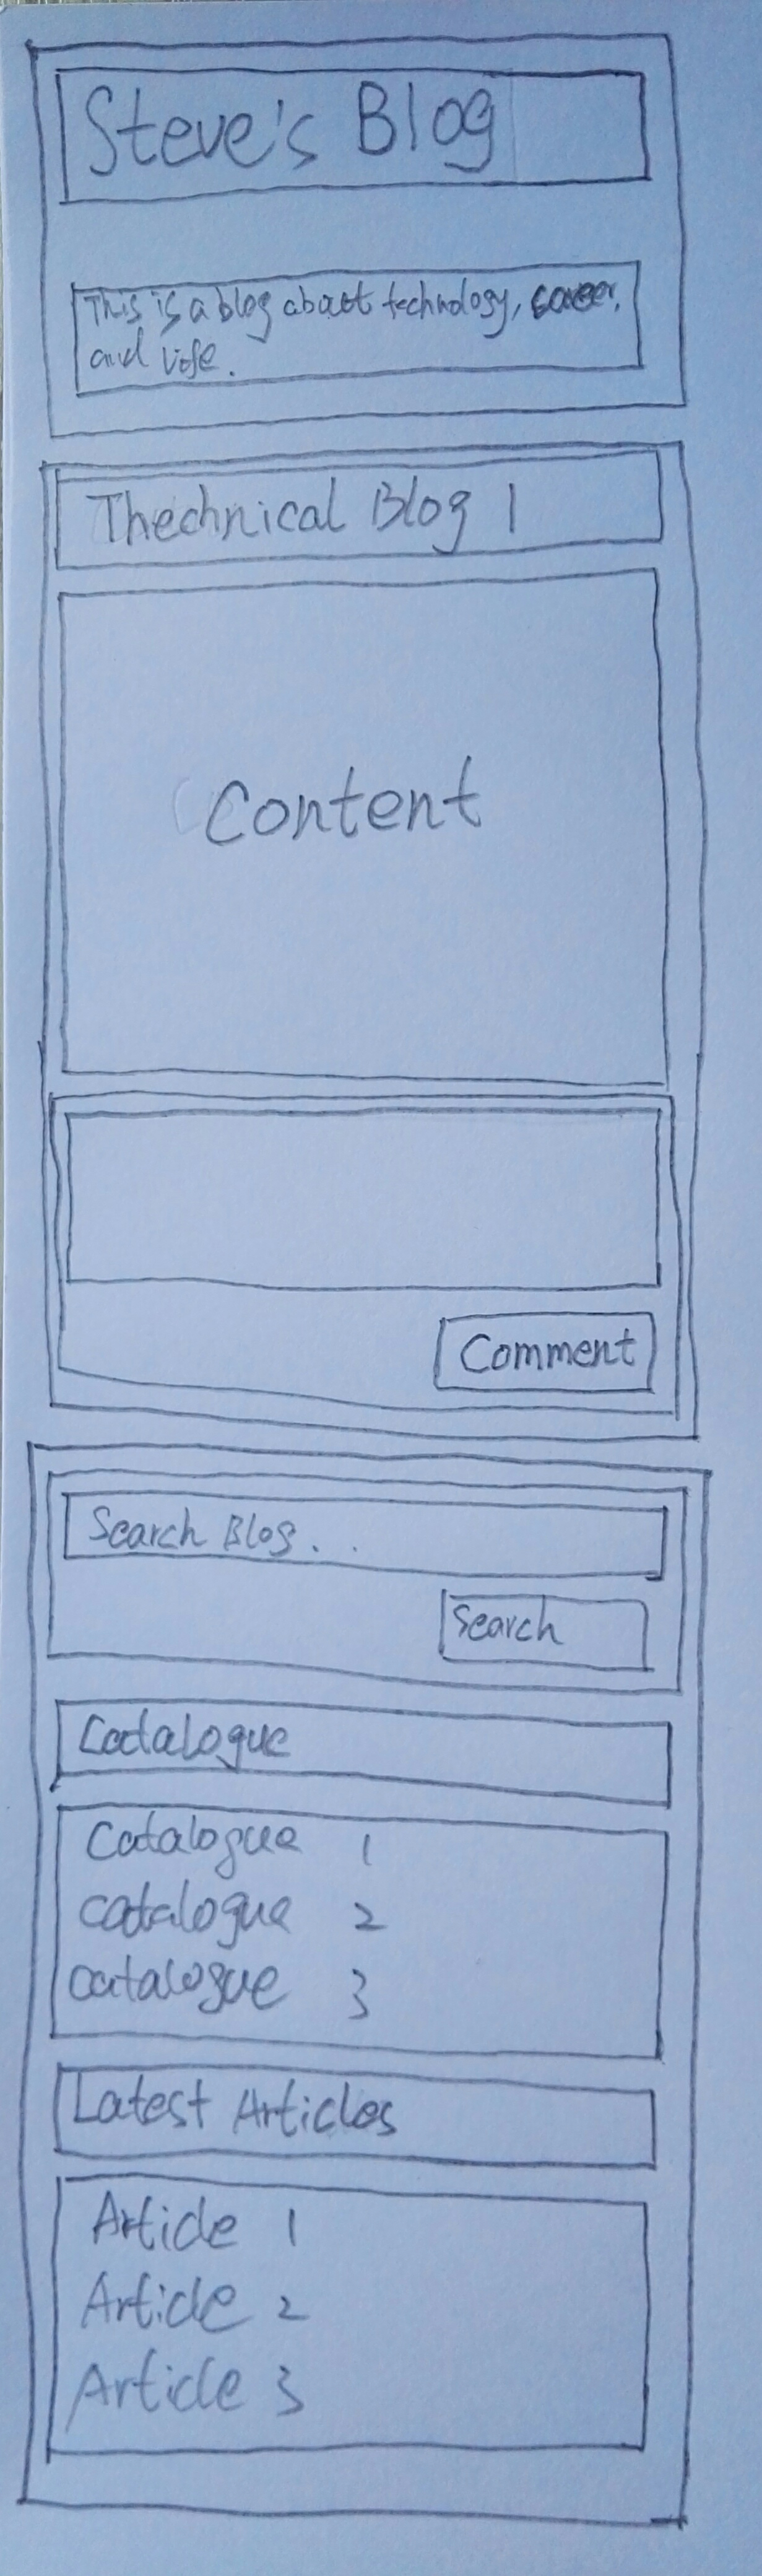 Steve's Blog
This is a blog about technology, career,
and life.
Thechnical Blog 1
Content
Comment
Search Blog...
Search
Catalogue
Catalogue 1
catalogue 2
catalogue 3
Latest Articles
Article 1
Article 2
Article 3